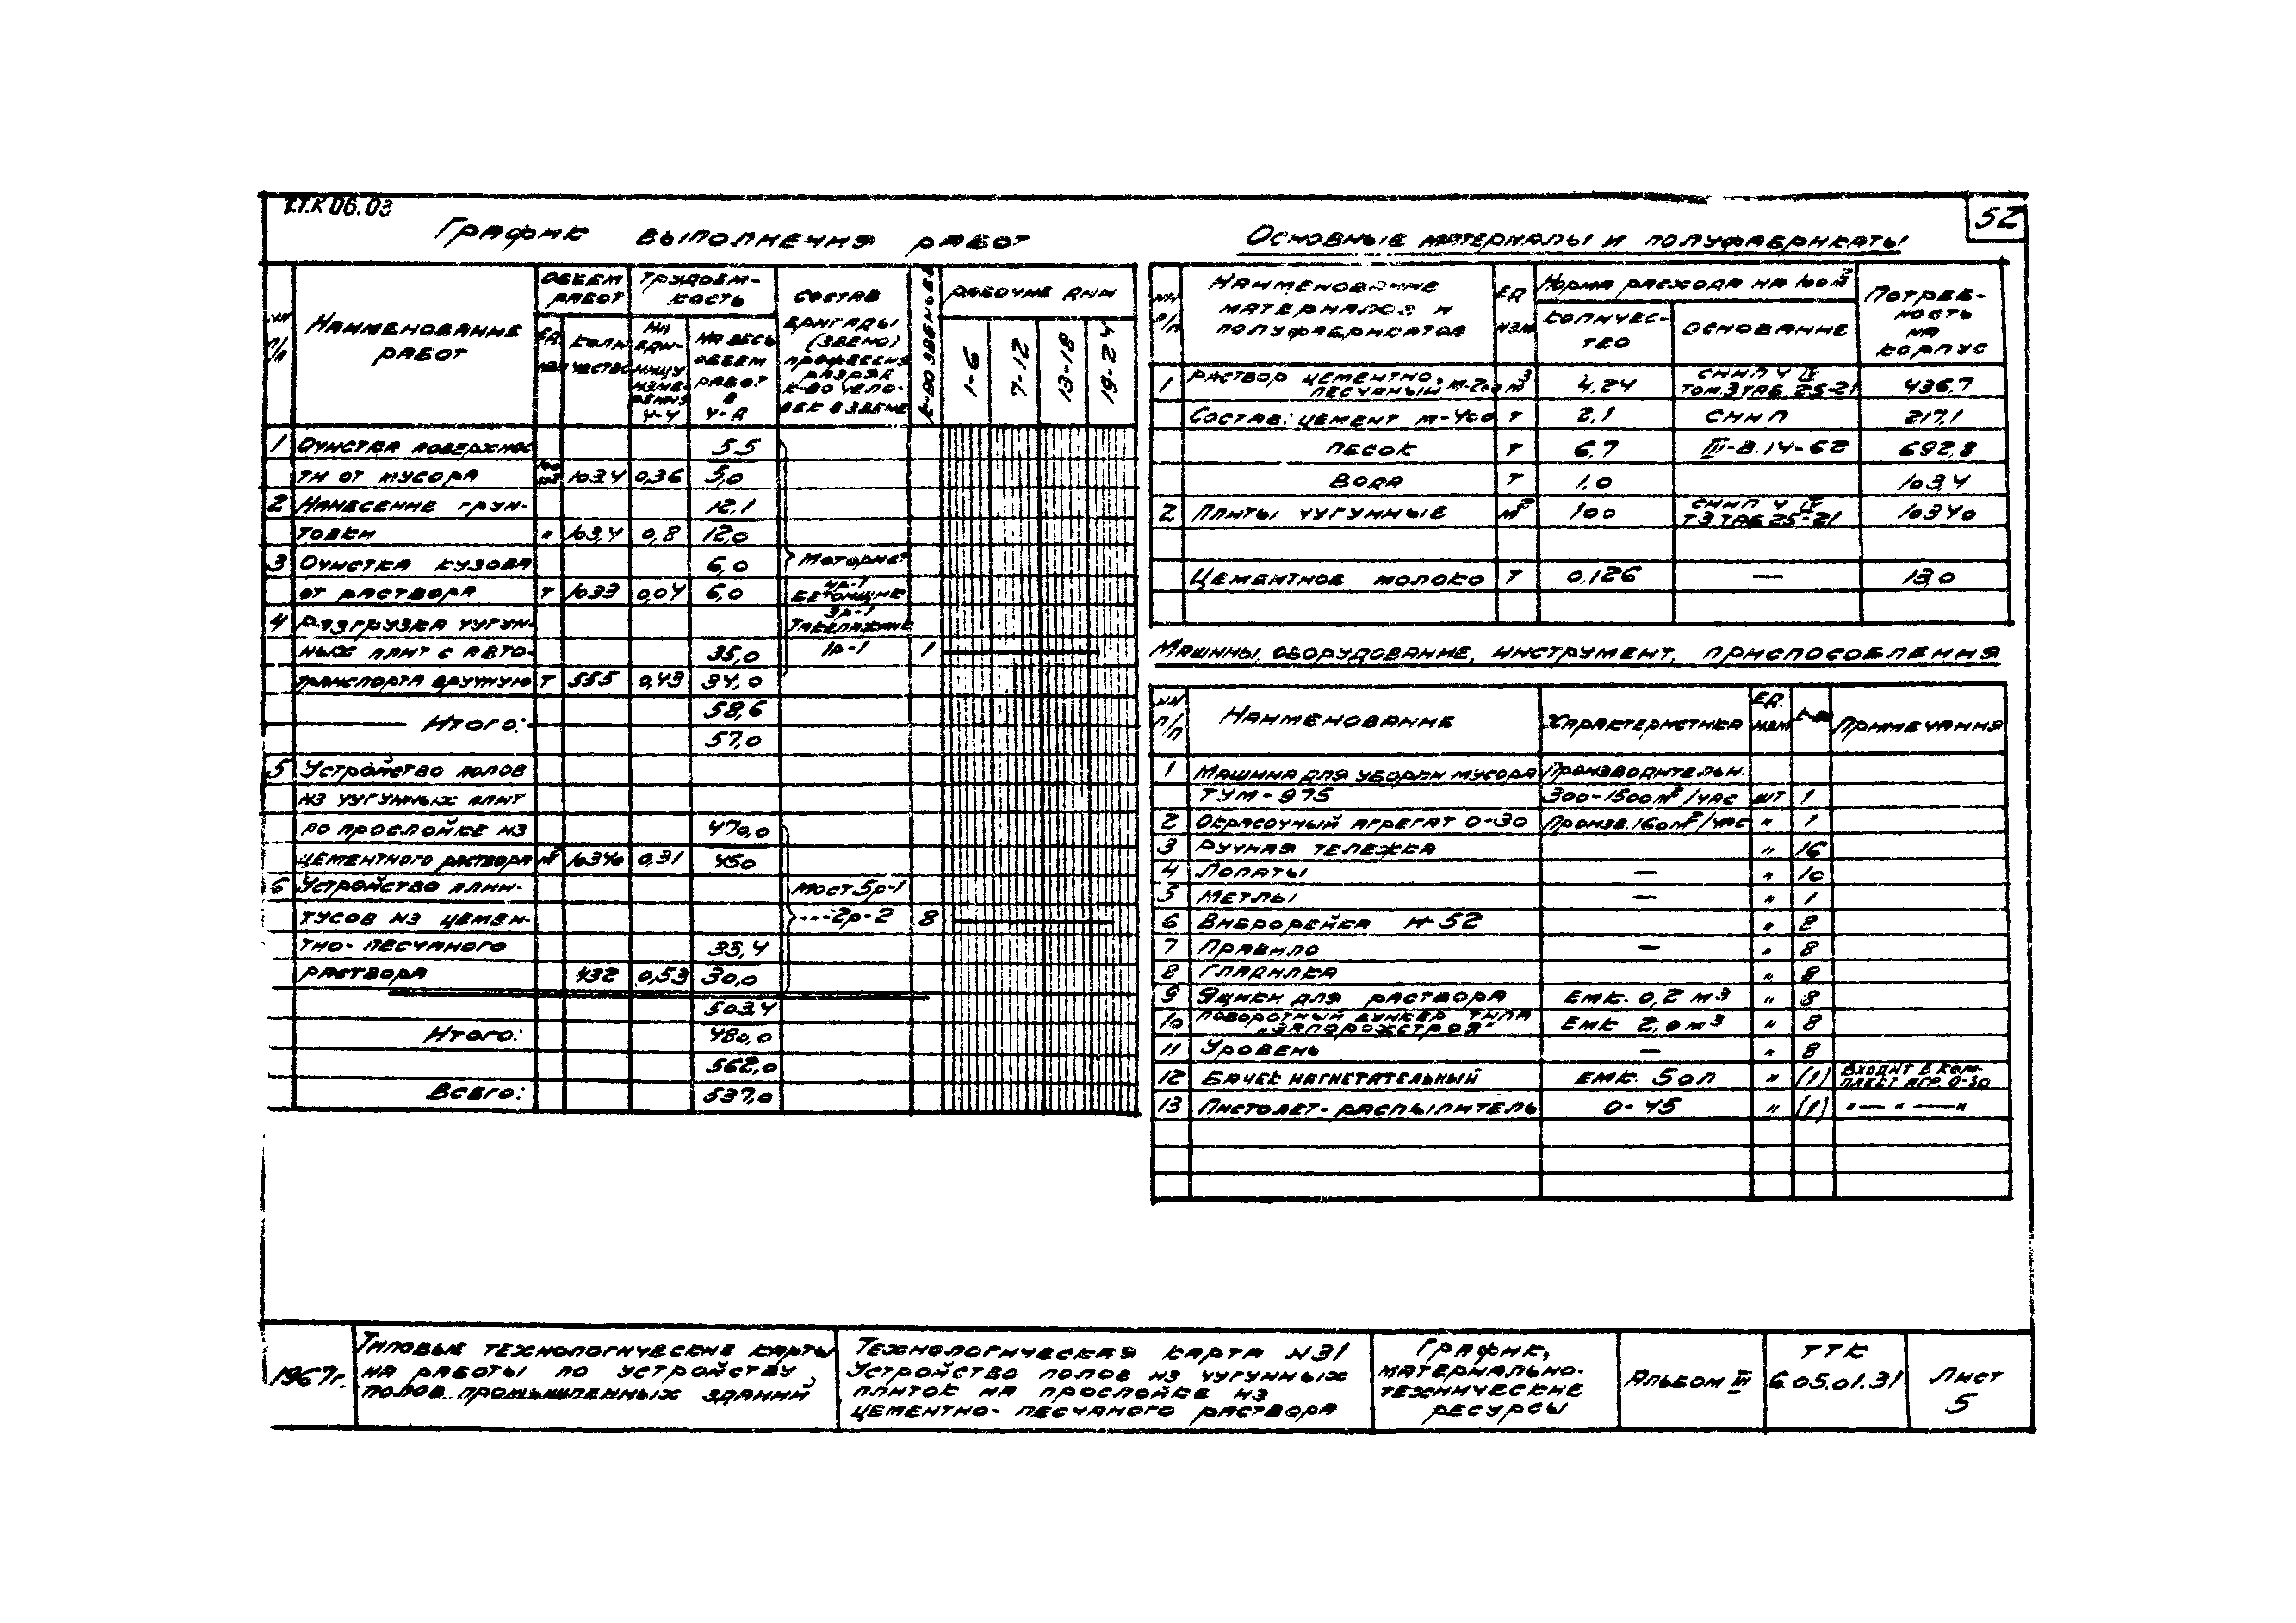 Т.Т.К 06.03
52
График выполнения работ
NN п/п
Наименование работ
Объем работ
Ед. изм
Количество
Трудоемкость
На единицу измерения ч-ч
На весь объем работ в ч-д
Состав бригады (звено) профессия разряд к-во человек в звене
К-во звеньев
Рабочие дни
1-6 7-12 13-18 19-24
1 Очистка поверхнос 5,5
ти от мусора 100 м2 103,4 0,36 5,0
2 Нанесение грун- 12,1
товки " 103,4 0,8 12,0
3 Очистка кузова 6,0 Моторист
от раствора т 1033 0,04 6,0 4р-1 Бетонщик
4 Разгрузка чугун- 3р-1 Такелажник
ных плит с авто- 35,0 1р-1 1
транспорта вручную т 555 0,43 34,0
58,6
Итого:
57,0
5 Устройство полов
из чугунных плит
по прослойке из 470,0
цементного раствора м2 10340 0,31 450
6 Устройство плин- мост 5р-1
тусов из цемен- -"- 2р-2 8
тно-песчаного 33,4
раствора 432 0,53 30,0
503,4
Итого: 480,0
562,0
Всего: 537,0
Основные материалы и полуфабрикаты
NN п/п
Наименование материалов и полуфабрикатов
Ед изм
Норма расхода на 100 м2
Количество
Основание
Потребность на корпус
1 Раствор цементно-песчаный м-200 м3 4,24 СНиП ч IV том.3 таб. 25-21 436,7
Состав: цемент м-400 т 2,1 СНиП 217,1
песок т 6,7 III-В.14-62 692,8
вода т 1,0 103,4
2 Плиты чугунные м2 100 СНиП ч IV т3 таб 25-21 10340
Цементное молоко т 0,126 — 13,0
Машины, оборудование, инструмент, приспособления
NN п/п
Наименование
Характеристика
Ед. изм
К-во
Примечания
1 Машина для уборки мусора Производительн.
ТУМ-975 300-1500 м2/час шт 1
2 Окрасочный агрегат О-30 Произв. 160 м2/час " 1
3 Ручная тележка " 16
4 Лопаты — " 10
5 Метлы — " 1
6 Виброрейка И-52 " 8
7 Правило — " 8
8 Гладилка " 8
9 Ящики для раствора Емк. 0,2 м3 " 8
10 Поворотный бункер типа „Запорожстроя" Емк 2,0 м3 " 8
11 Уровень — " 8
12 Бачек нагнетательный Емк. 50л " (1) Входит в ком-
плект агр. О-30
13 Пистолет-распылитель О-45 " (1) "—"—"
1967г.
Типовые технологические карты
на работы по устройству
полов промышленных зданий
Технологическая карта N31
Устройство полов из чугунных
плиток на прослойке из
цементно-песчаного раствора
График,
материально-
технические
ресурсы
Альбом III
ТТК
6.05.01.31
Лист
5